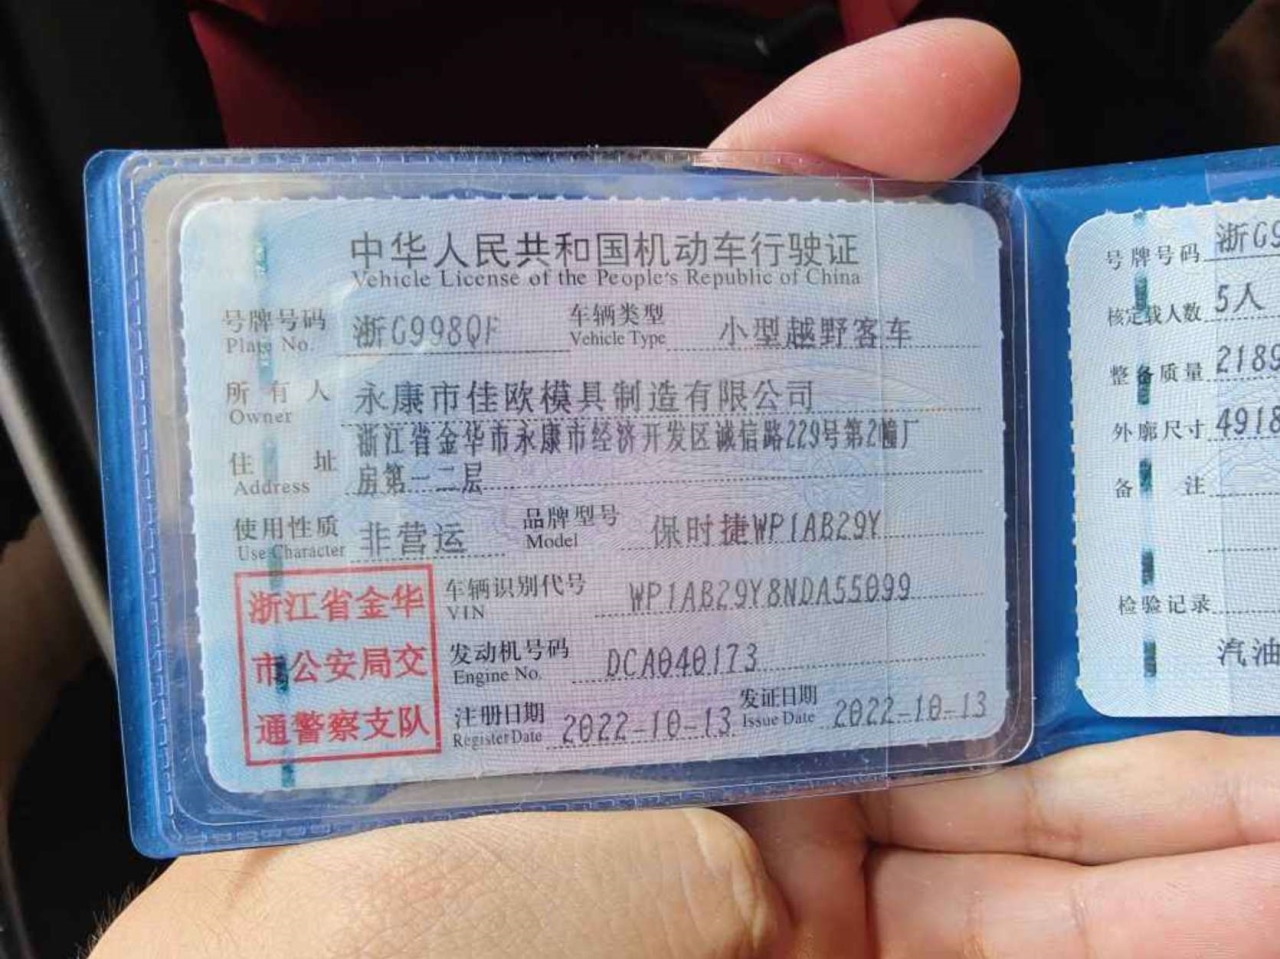 中华人民共和国机动车行驶证
Vehicle License of the People's Republic of China
号牌号码 浙G998QF 车辆类型 小型越野客车
Plate No. Vehicle Type
所有人 永康市佳欧模具制造有限公司
Owner
住址 浙江省金华市永康市经济开发区诚信路229号第2幢厂
Address 房第一二层
使用性质 非营运 品牌型号 保时捷WP1AB29Y
Use Character Model
浙江省金华
市公安局交
通警察支队
车辆识别代号 WP1AB29Y8NDA55099
VIN
发动机号码 DCA040173
Engine No.
注册日期 2022-10-13 发证日期 2022-10-13
Register Date Issue Date
号牌号码 浙G9
核定载人数 5人
整备质量 2189
外廓尺寸 4918
备注
检验记录
汽油